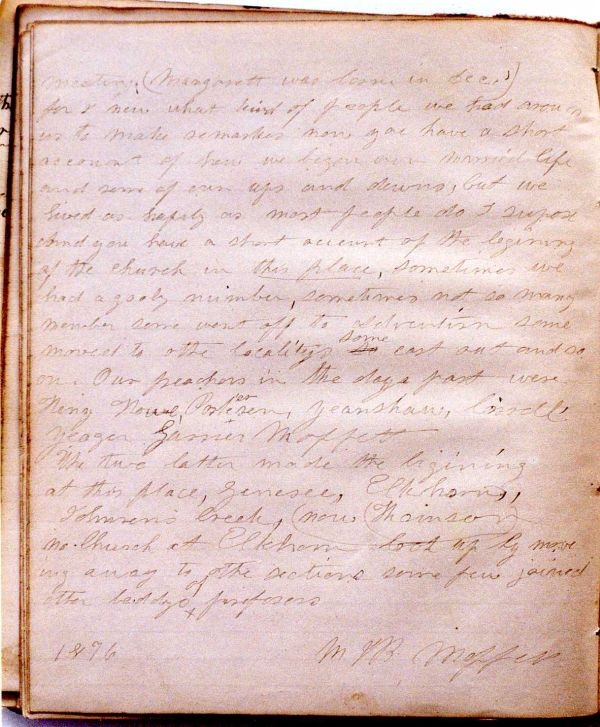 meeting, (Margarett was borne in Dec.)
for I new what kind of people we had aroun
us to make remarkes now you have a short
account of how we began our married life
and some of our ups and downs, but we
lived as hapily as most people do I supose
and you have a short account of the begining
of the church in this place, sometimes we
had a gooly number, sometimes not so many
member some went off to Adventism some
moved to othe localitys some cast out and so
on. Our preachers in the days past were
King Howe,
Yeager Garner Moffett
The two latter made the begining
at this place, Genesee, Elkhorn,
Johnson's Creek, (now
no Church at Elkhorn up by move
ing away to othe sections some few joined
other boddys, profesors
1876 Moffett